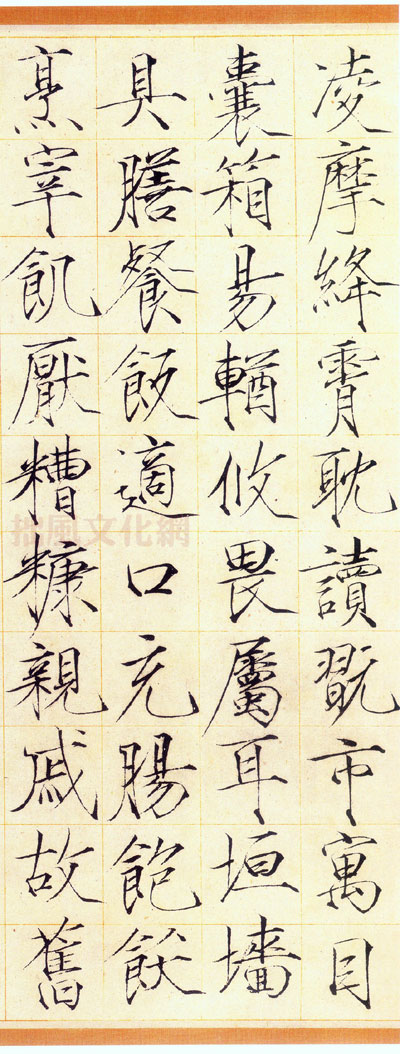 凌摩絳霄耽讀翫市寓目
囊箱易輶攸畏屬耳垣墻
具膳餐飯適口充腸飽飫
烹宰飢厭糟糠親戚故舊
拙風文化網